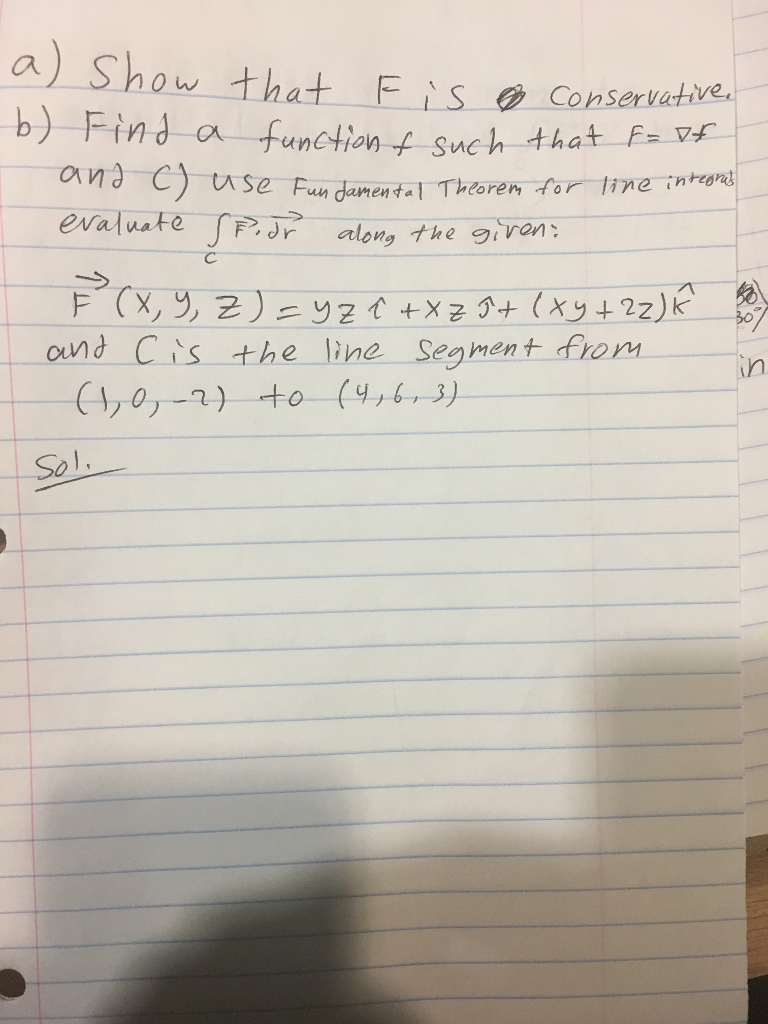 a) Show that F is Conservative.
b) Find a function f such that F = ∇f
and C) use Fundamental Theorem for line integrals
evaluate ∫_C F⃗ · d⃗r along the given:
F⃗ (x, y, z) = yz î + xz ĵ + (xy + 2z) k̂
and C is the line segment from
(1, 0, -2) to (4, 6, 3)
Sol.
30°
in